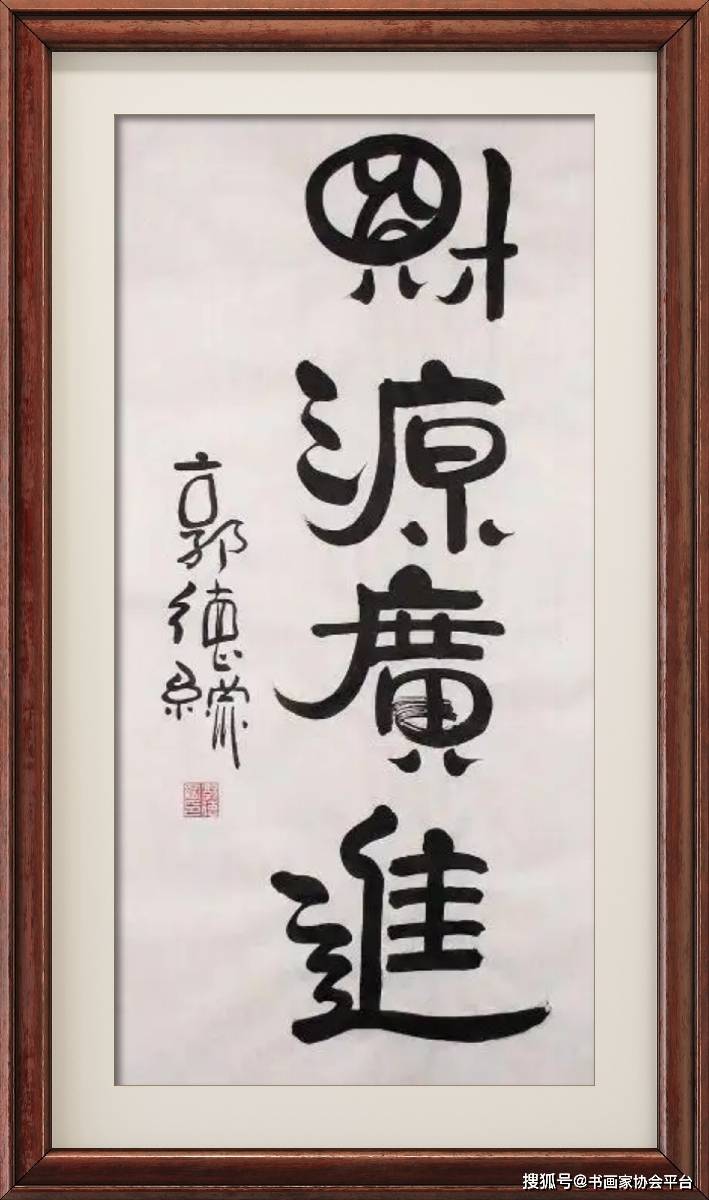 財源廣進
郭德綱
搜狐号@书画家协会平台